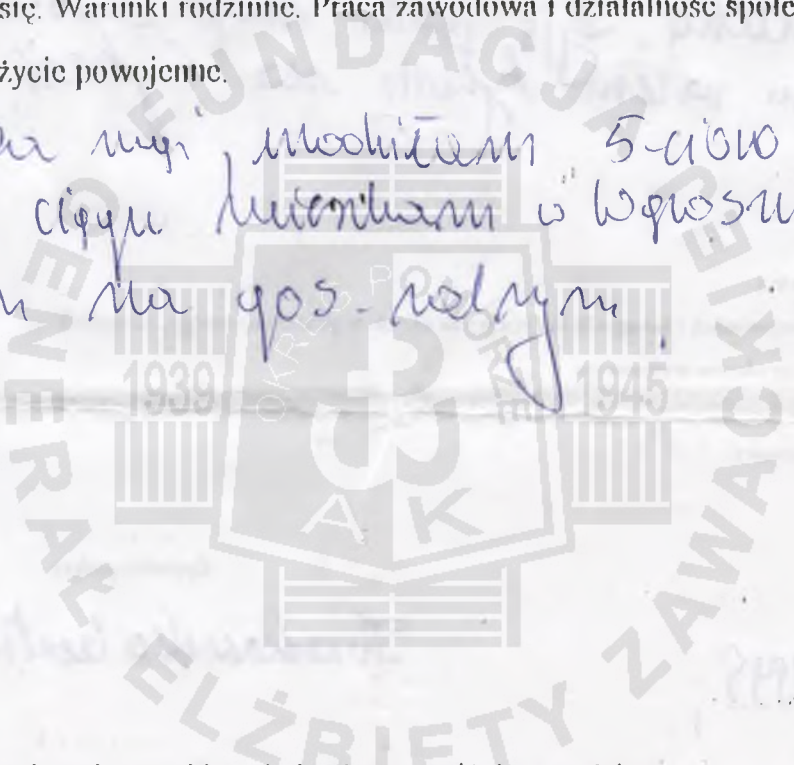 się. Warunki rodzinne. Praca zawodowa i działalność społe
życie powojenne.
mąż, urodziłam 5-cioro
ciągu mieszkam w
na gos-rolnym.
FUNDACJA
GENERAŁ ELŻBIETY ZAWACKIEJ
OKRĘG POMORZE
1939 1945
AK